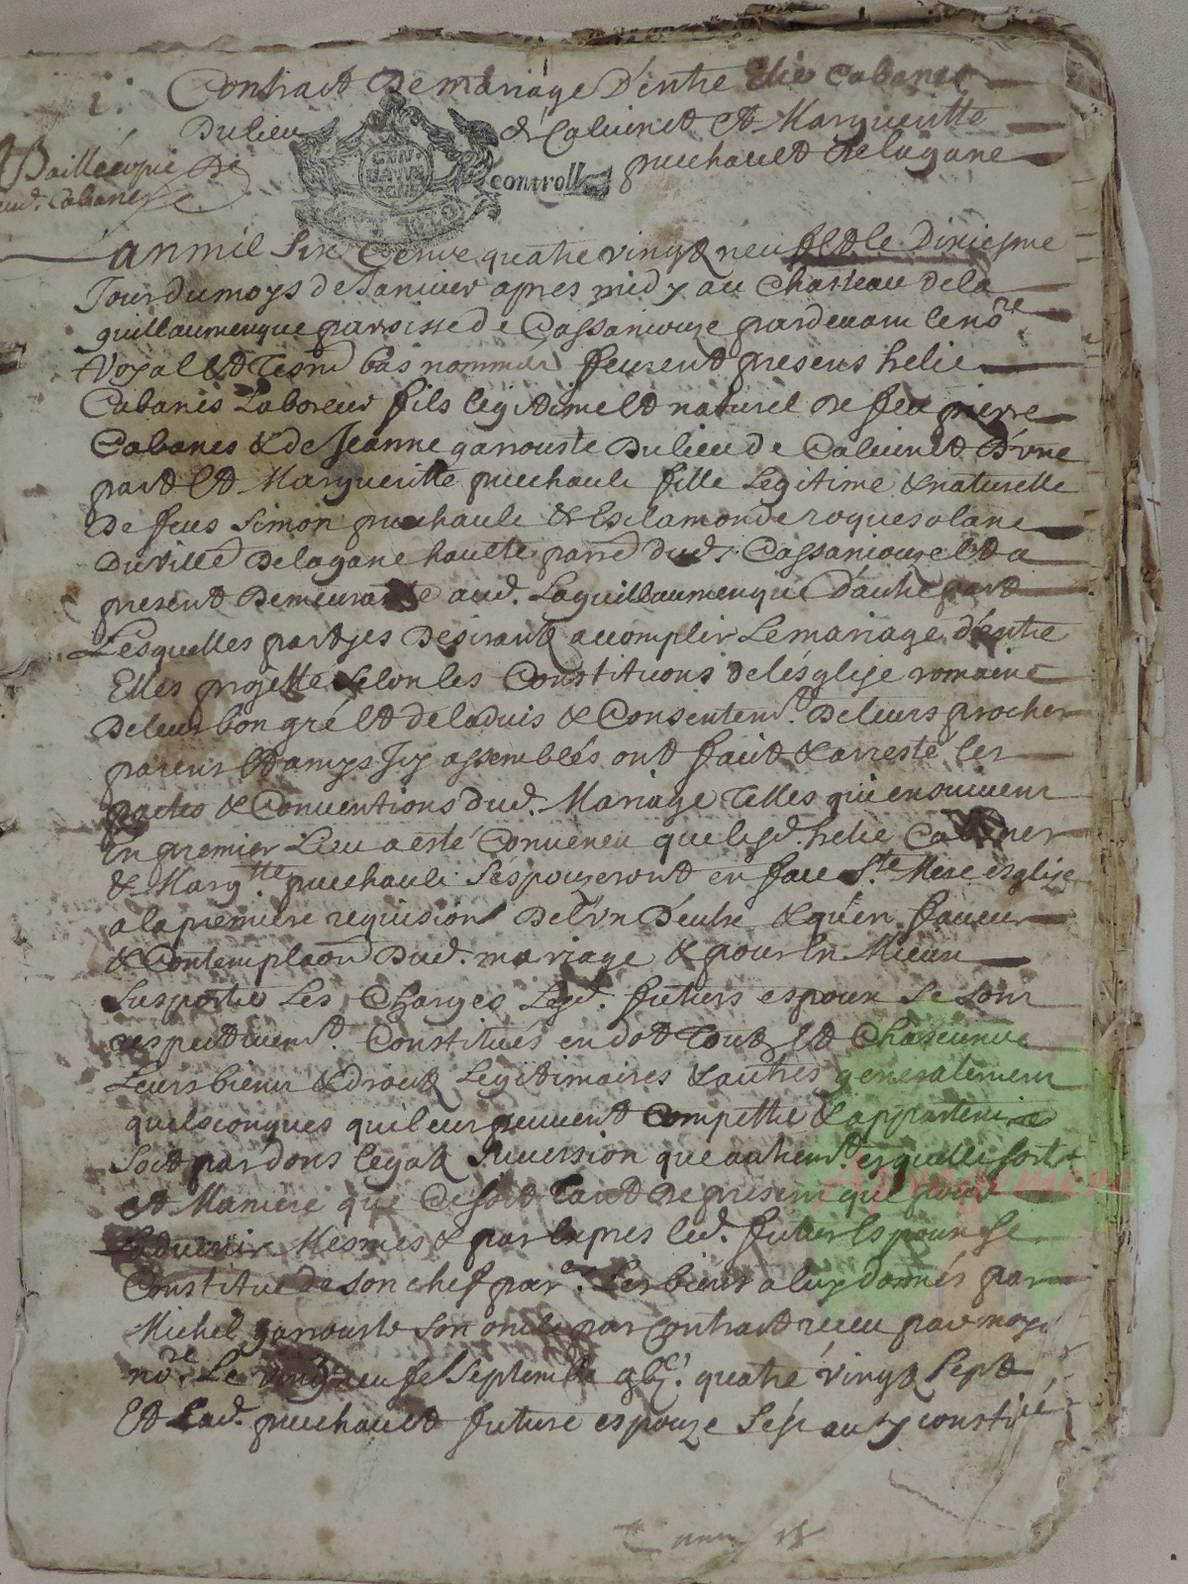 1.
Contract de mariage d'entre Elie Cabanes
du lieu de Caluinet et Margueritte
puechault de lagane
Baillé copie
aud. Cabanes
controlle
L'an mil six cens quatre vingt neuf et le dixiesme
Jour du moys de Januier apres midy au Chasteau de la
guillaumenque paroisse de Cassaniouze pardeuant le nore
Royal et tesm bas nommes feurent presens helie
Cabanes Laboreur fils legitime et naturel de feu pierre
Cabanes & de Jeanne garrouste du lieu de Caluinet d'vne
part et Margueritte puechault fille Legitime & naturelle
de feus Simon puechault & Esclamonde roquesolane
du village de lagane haulte parre dud. Cassaniouze et a
present demeurante aud. Laguillaumenque d'autre part
Lesquelles partyes desirant accomplir Le mariage d'entre
Elles projetté selon les Constitutions de l'esglise romaine
de leur bon gré et de laduis & Consentent. de leurs proches
parens et amys Jcy assemblés ont faict & arresté les
pactes & Conuentions dud. Mariage telles qui ensuiuent
En premier Lieu a esté Conueneu que lesd. helie Cabanes
& Margtte puechault s'espouzeront en face Ste Mere esglize
a la premiere requision de l'vn d'eulx & qu'en faueur
& Contemplaon dud. mariage & pour en Mieux
suporter Les Charges Lesd. futeurs espoux se sont
respectiuent. Constitués en dot touts et Chascuns
Leurs biens & droicts Legitimaires & autres generalement
quelsconques qui leur peuuent Compette & appartenir
Soit par dons legats succession que autrent. en quelle sorte
et Maniere que Ce soit tant de present que pour
Laduenir Mesmes & par Expres led. futur Espoux se
Constitue de son chef parer. Les biens a luy donnés par
Michel garrouste son oncle par Contract receu par moy
nore Le vingt neufe Septembre gbc. quatre vingt sept
Et Lad. puechault future espouze s'est aussy constitué